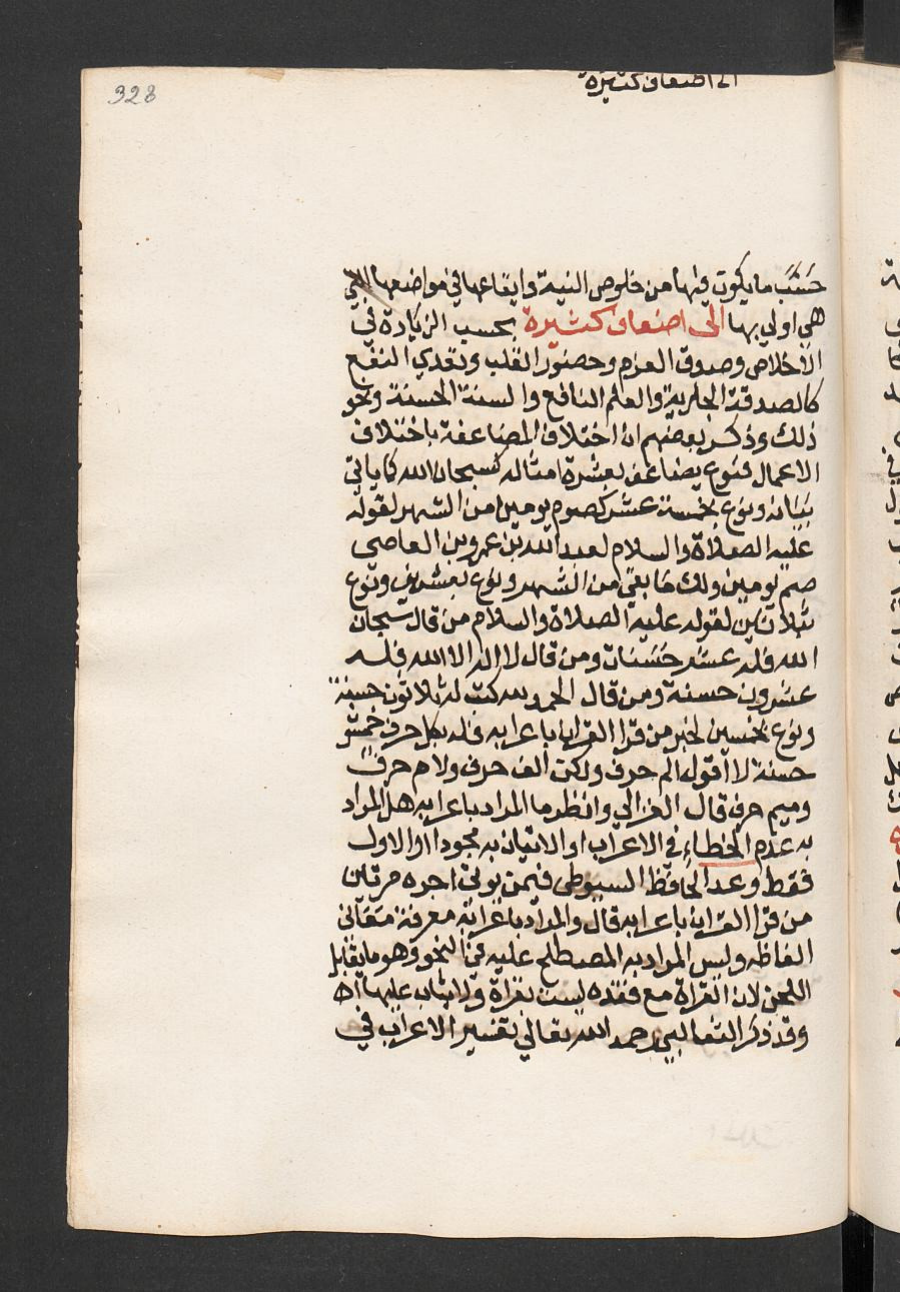 328
الى اضعاف كثيرة
حسب ما يكون فيها من خلوص النية وايقاعها في مواضعها التي
هي اولي بها الى اضعاف كثيرة بحسب الزيادة في
الاخلاص وصدوق العزم وحضور القلب وتعدي النفع
كالصدقة الجارية والعلم النافع والسنة الحسنة ونحو
ذلك وذكر بعضهم ان اختلاف المضاعفة باختلاف
الاعمال فنوع يضاعف بعشرة امثاله كسبحان الله كما ياتي
بيانه ونوع بخمسة عشر كصوم يومين من الشهر لقوله
عليه الصلاة والسلام لعبد الله بن عمرو بن العاصي
صم يومين ولك ما بقي من الشهر ونوع بعشرين ونوع
بثلاثين لقوله عليه الصلاة والسلام من قال سبحان
الله فله عشر حسنات ومن قال لا اله الا الله فله
عشرون حسنة ومن قال الحمد لله كتب له ثلاثون حسنة
ونوع بخمسين لخبر من قرا القران باعرابه فله بكل حرف خمسون
حسنة لا اقول الم حرف ولكن الف حرف ولام حرف
وميم حرف قال الغزالي وانظر ما المراد باعرابه هل المراد
به عدم الخطاء في الاعراب او الاتيان به مجودا او الاول
فقط وعد الحافظ السيوطي فيمن يوتى اجره مرتين
من قرا القران باعرابه قال والمراد باعرابه معرفة معاني
الفاظه وليس المراد به المصطلح عليه في النحو وهو ما يقابل
اللحن لان القراة مع فقده ليست بقراة ولا يثاب عليها اه
وقد ذكر الثعالبي رحمه الله تعالي تفسير الاعراب في